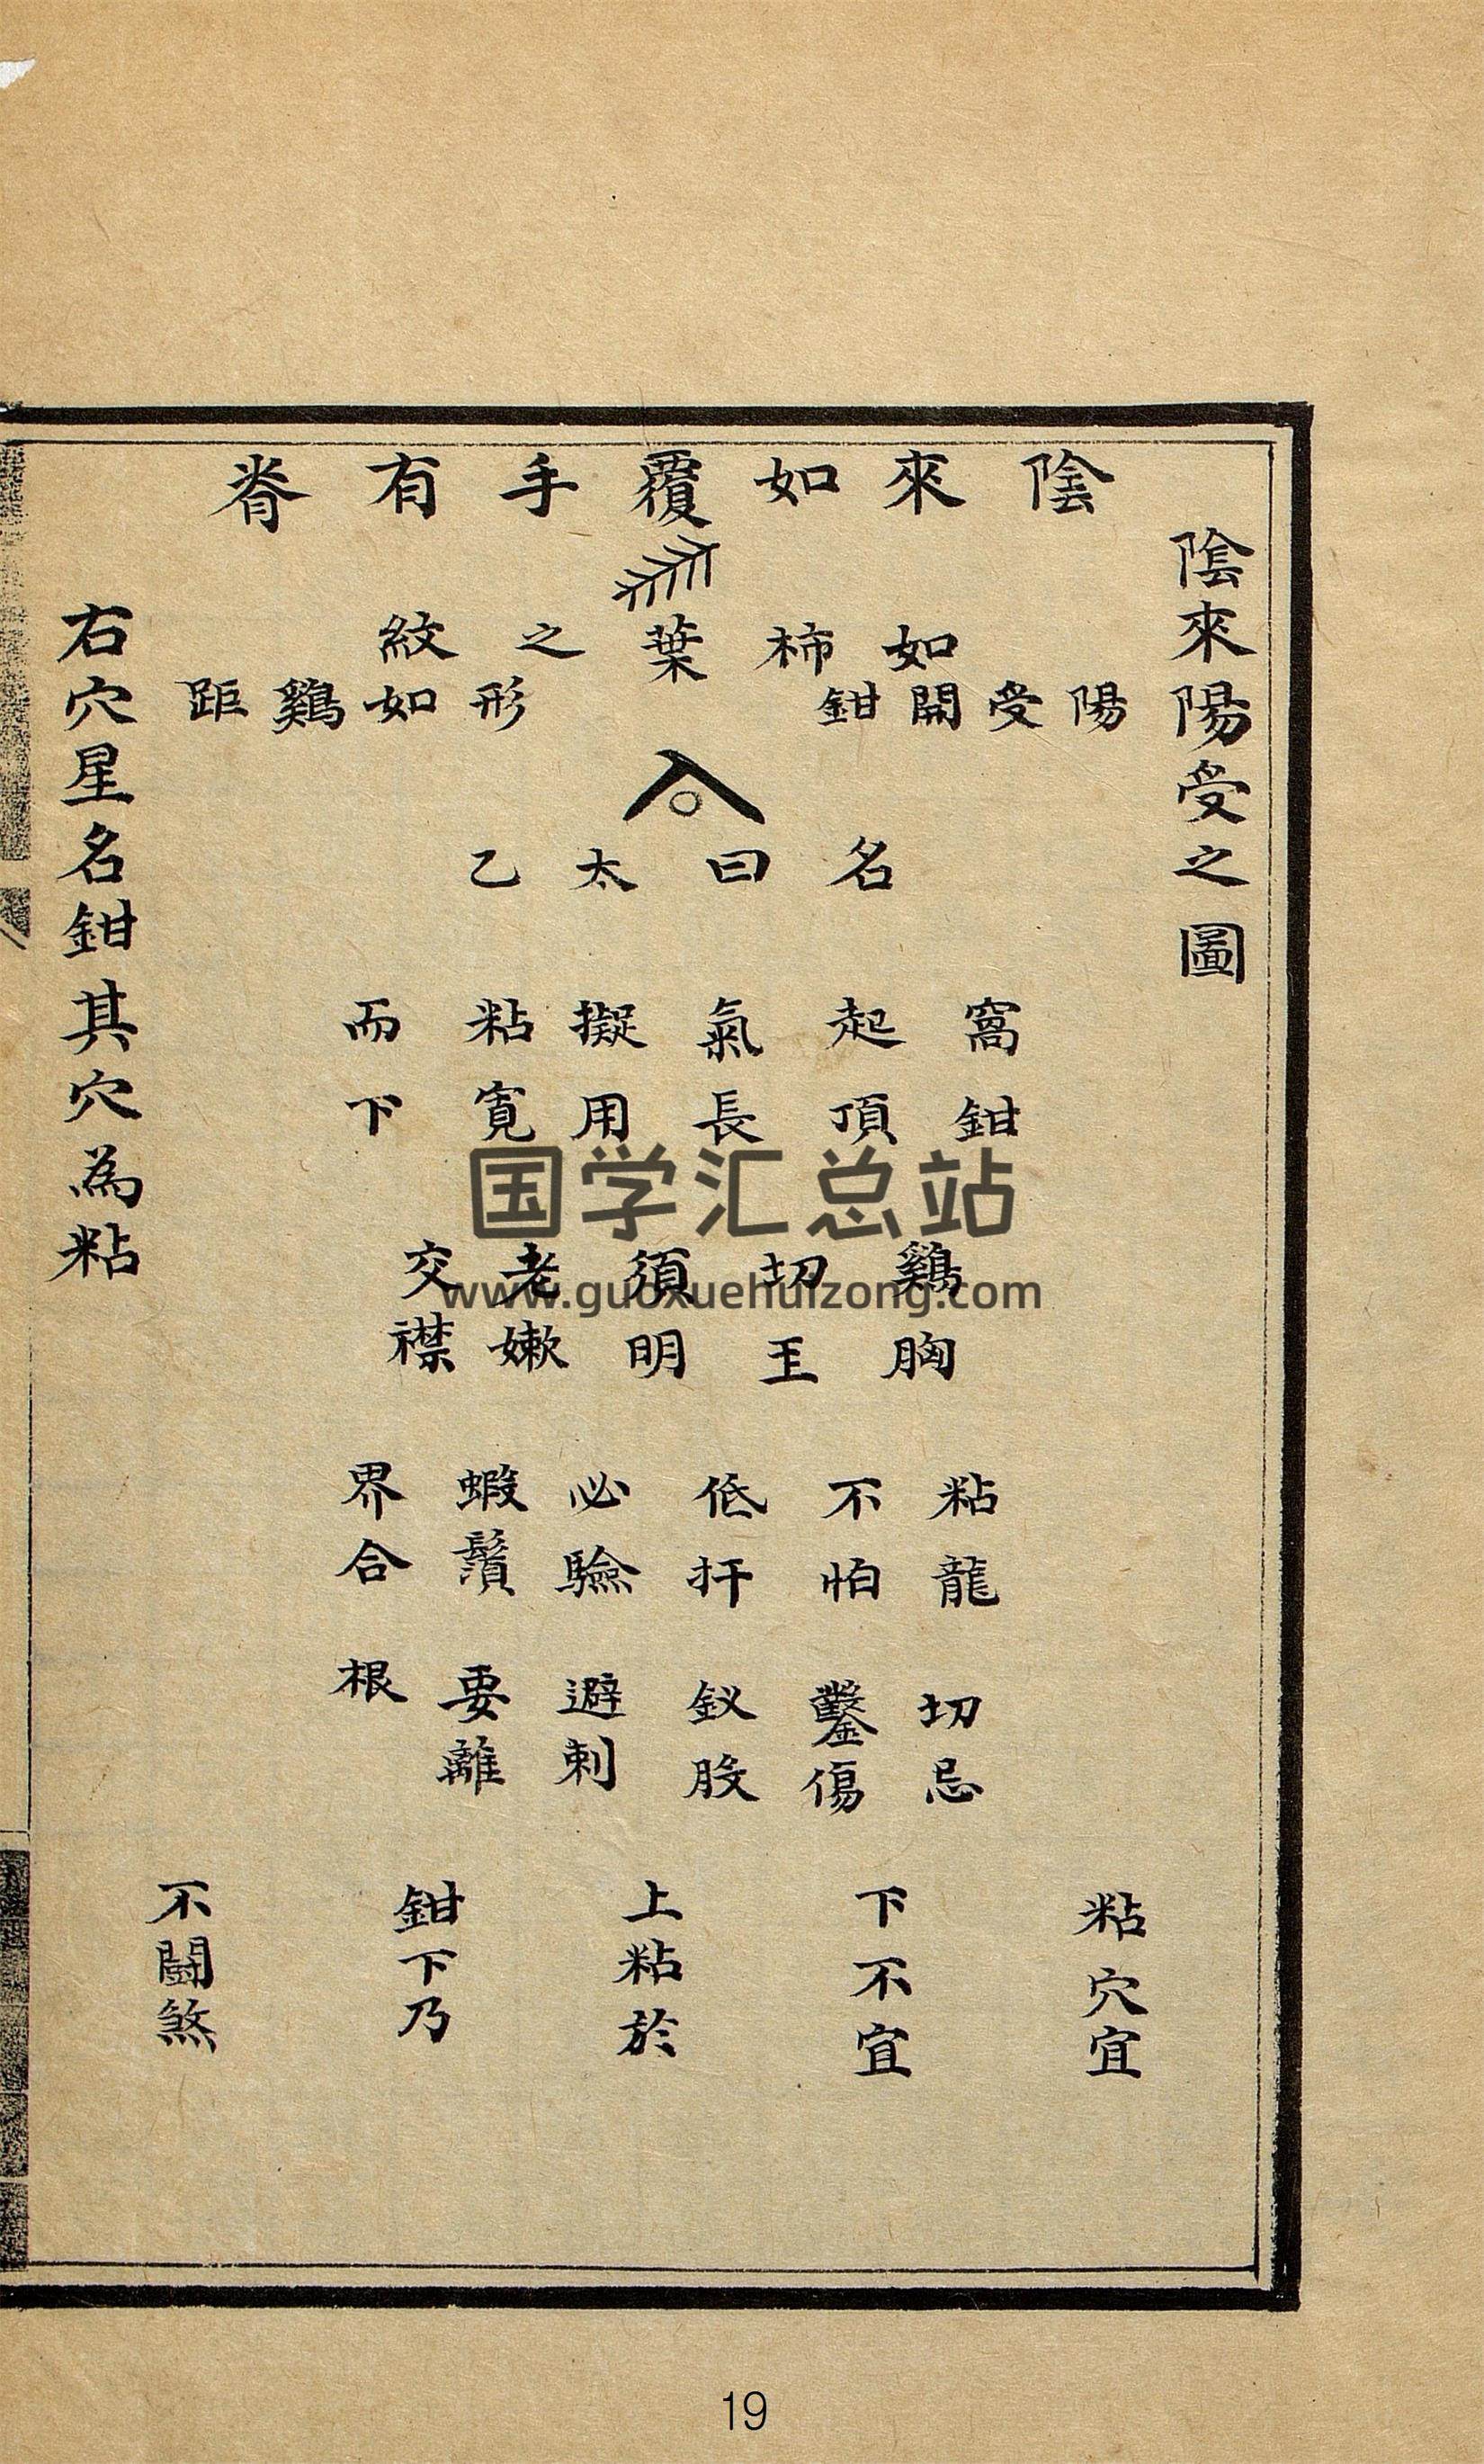 陰來陽受之圖
陰來如覆手有脊
如柿葉之紋
陽受開鉗
形如鷄距
名曰太乙
窩鉗
起頂
氣長
擬用
粘寬
而下
鷄胸
切玉
須明
老嫩
交襟
粘龍
不怕
低扞
必驗
蝦鬚
界合
切忌
鑿傷
釵股
避刺
要離
根
粘穴宜
下不宜
上粘於
鉗下乃
不鬪煞
右穴星名鉗其穴為粘
国学汇总站
www.guoxuehuizong.com
19